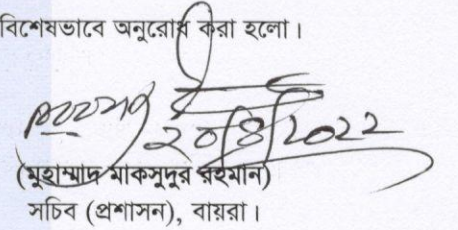 বিশেষভাবে অনুরোধ করা হলো।
২০/৪/২০২২
(মুহাম্মাদ মাকসুদুর রহমান)
সচিব (প্রশাসন), বায়রা।